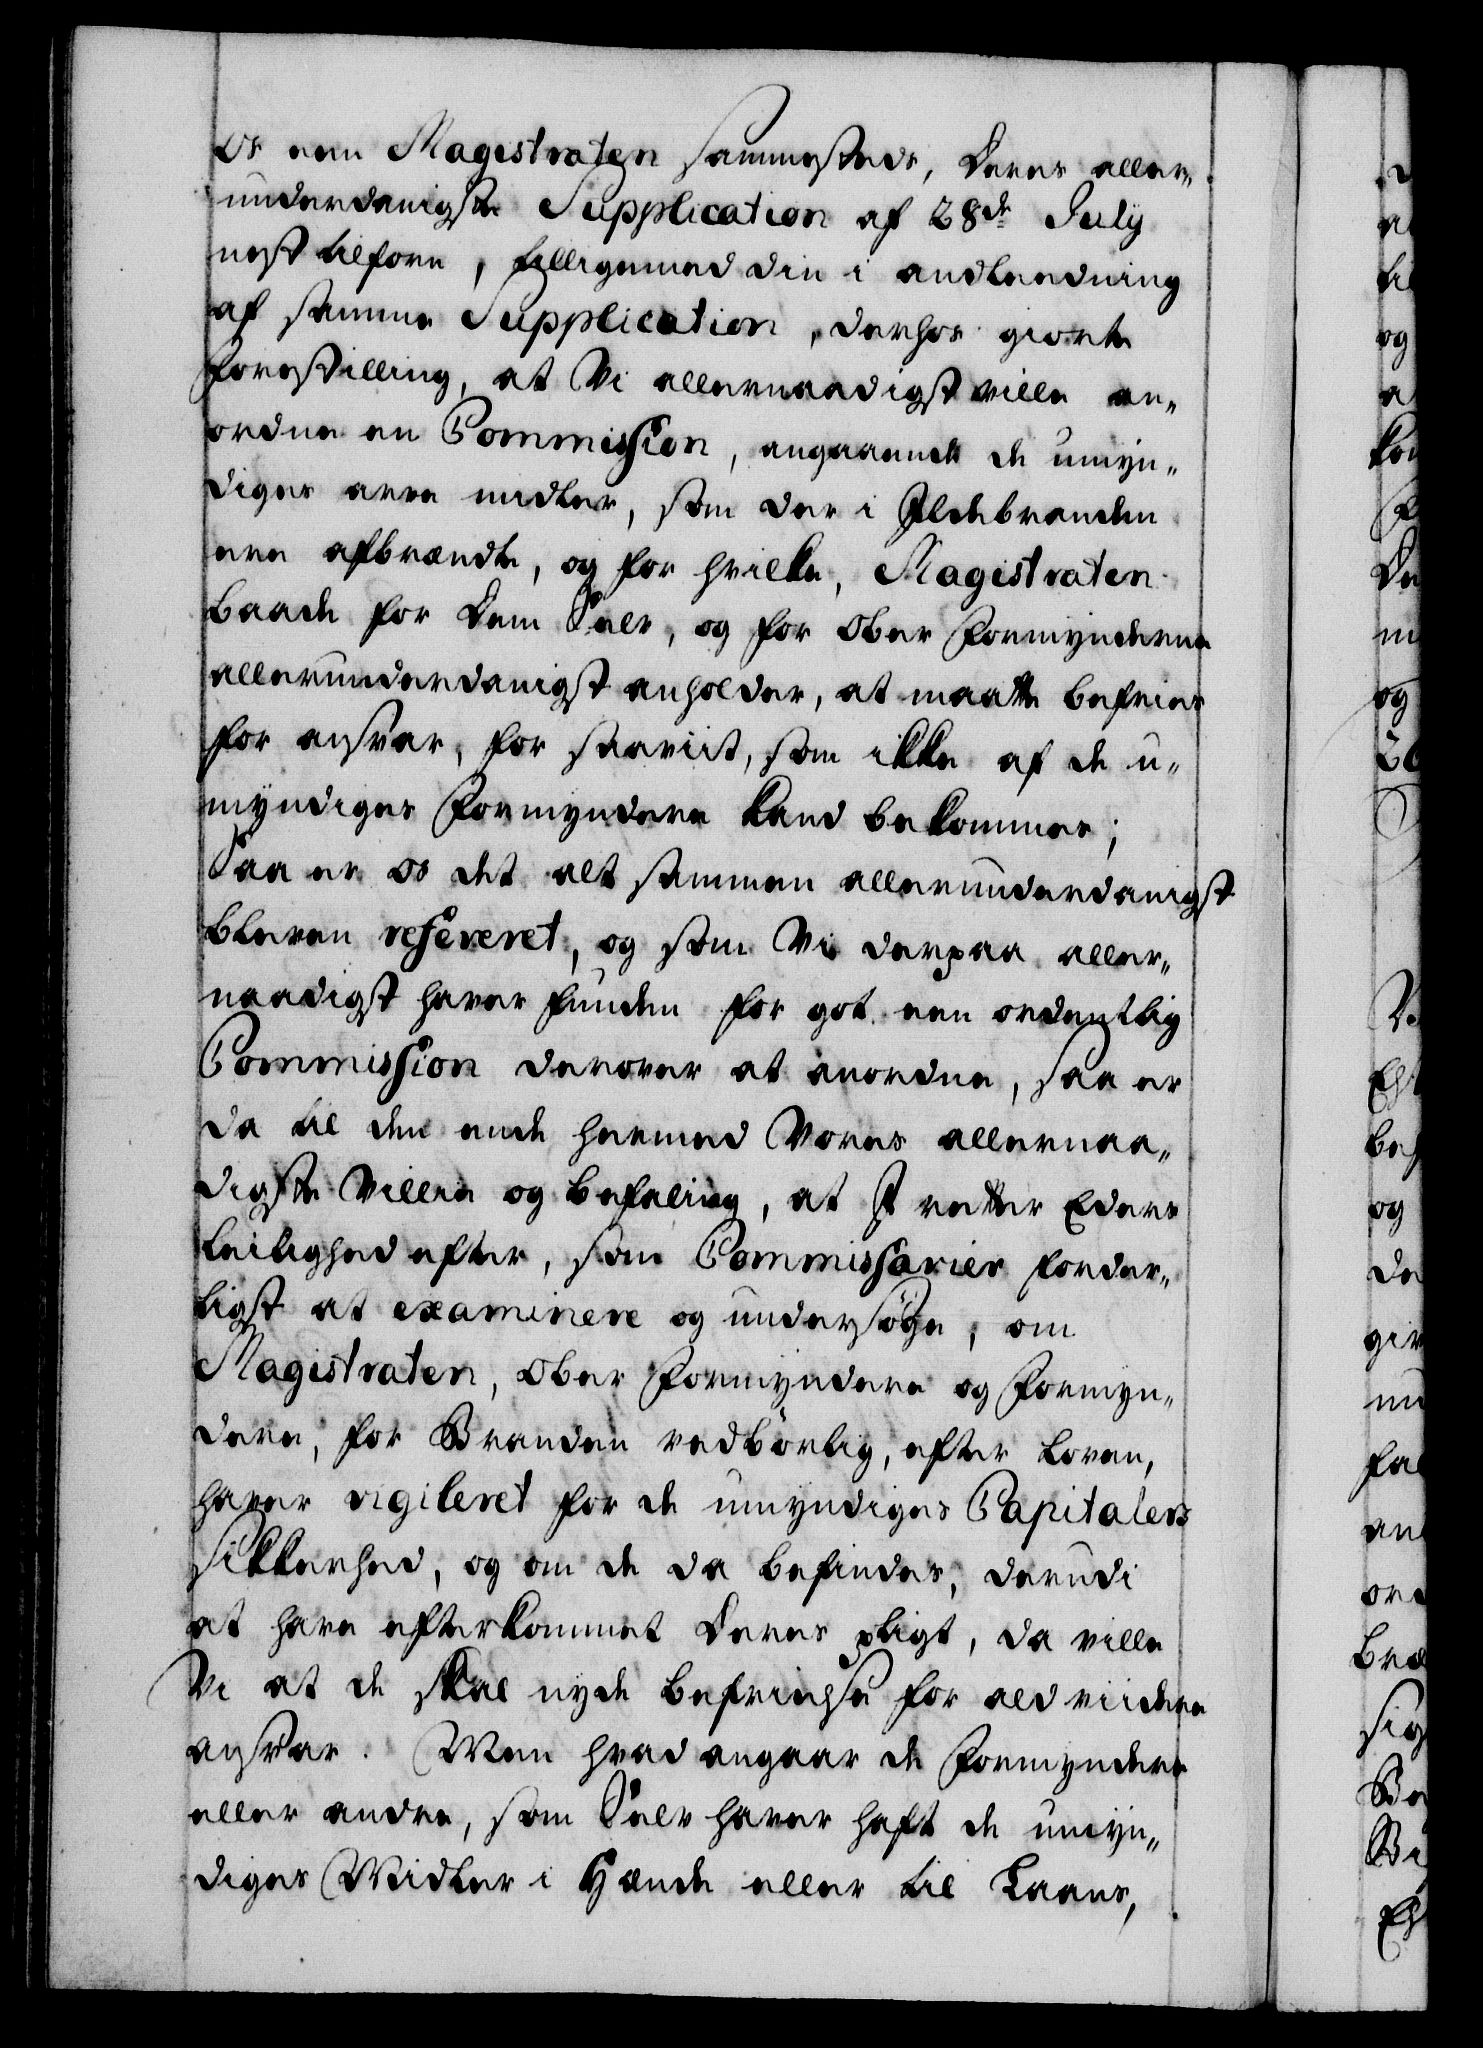 os een Magistraten sammesteds, deres aller-
underdanigste Supplication af 28de July
nest tilforn, tilligemed din i andledning
af samme Supplication, derhos giorte
forestilling, at Vi allernaadigst ville an-
ordne en Commission, angaaende de umyn-
diges arve midler, som der i Ildebranden
ere afbrændte, og for hvilke, Magistraten
baade for dem Selv, og for Ober Formynderne
allerunderdanigst anholder, at maatte befries
for ansvar, for saaviit, som ikke af de u-
myndiges Formyndere kand bekommes;
Saa er os det alt sammen allerunderdanigst
bleven refereret, og som Vi derpaa aller-
naadigst haver funden for got een ordentlig
Commission derover at anordne, saa er
da til den ende hermed Vores allernaa-
digste Villie og befaling, at I retter Eders
Leilighed efter, som Commissarier forder-
ligst at examinere og undersöge, om
Magistraten, Ober Formyndere og Formyn-
dere, for Branden vedbörlig, efter loven,
haver vigileret for de umyndiges Capitalers
sikkerhed, og om de da befindes, derudi
at have efterkommet deres pligt, da ville
Vi at de skal nyde befrielse for ald viidere
ansvar. Men hvad angaar de Formyndere
eller andre, som Selv haver haft de umyn-
diges Midler i Hænde eller til Laans,